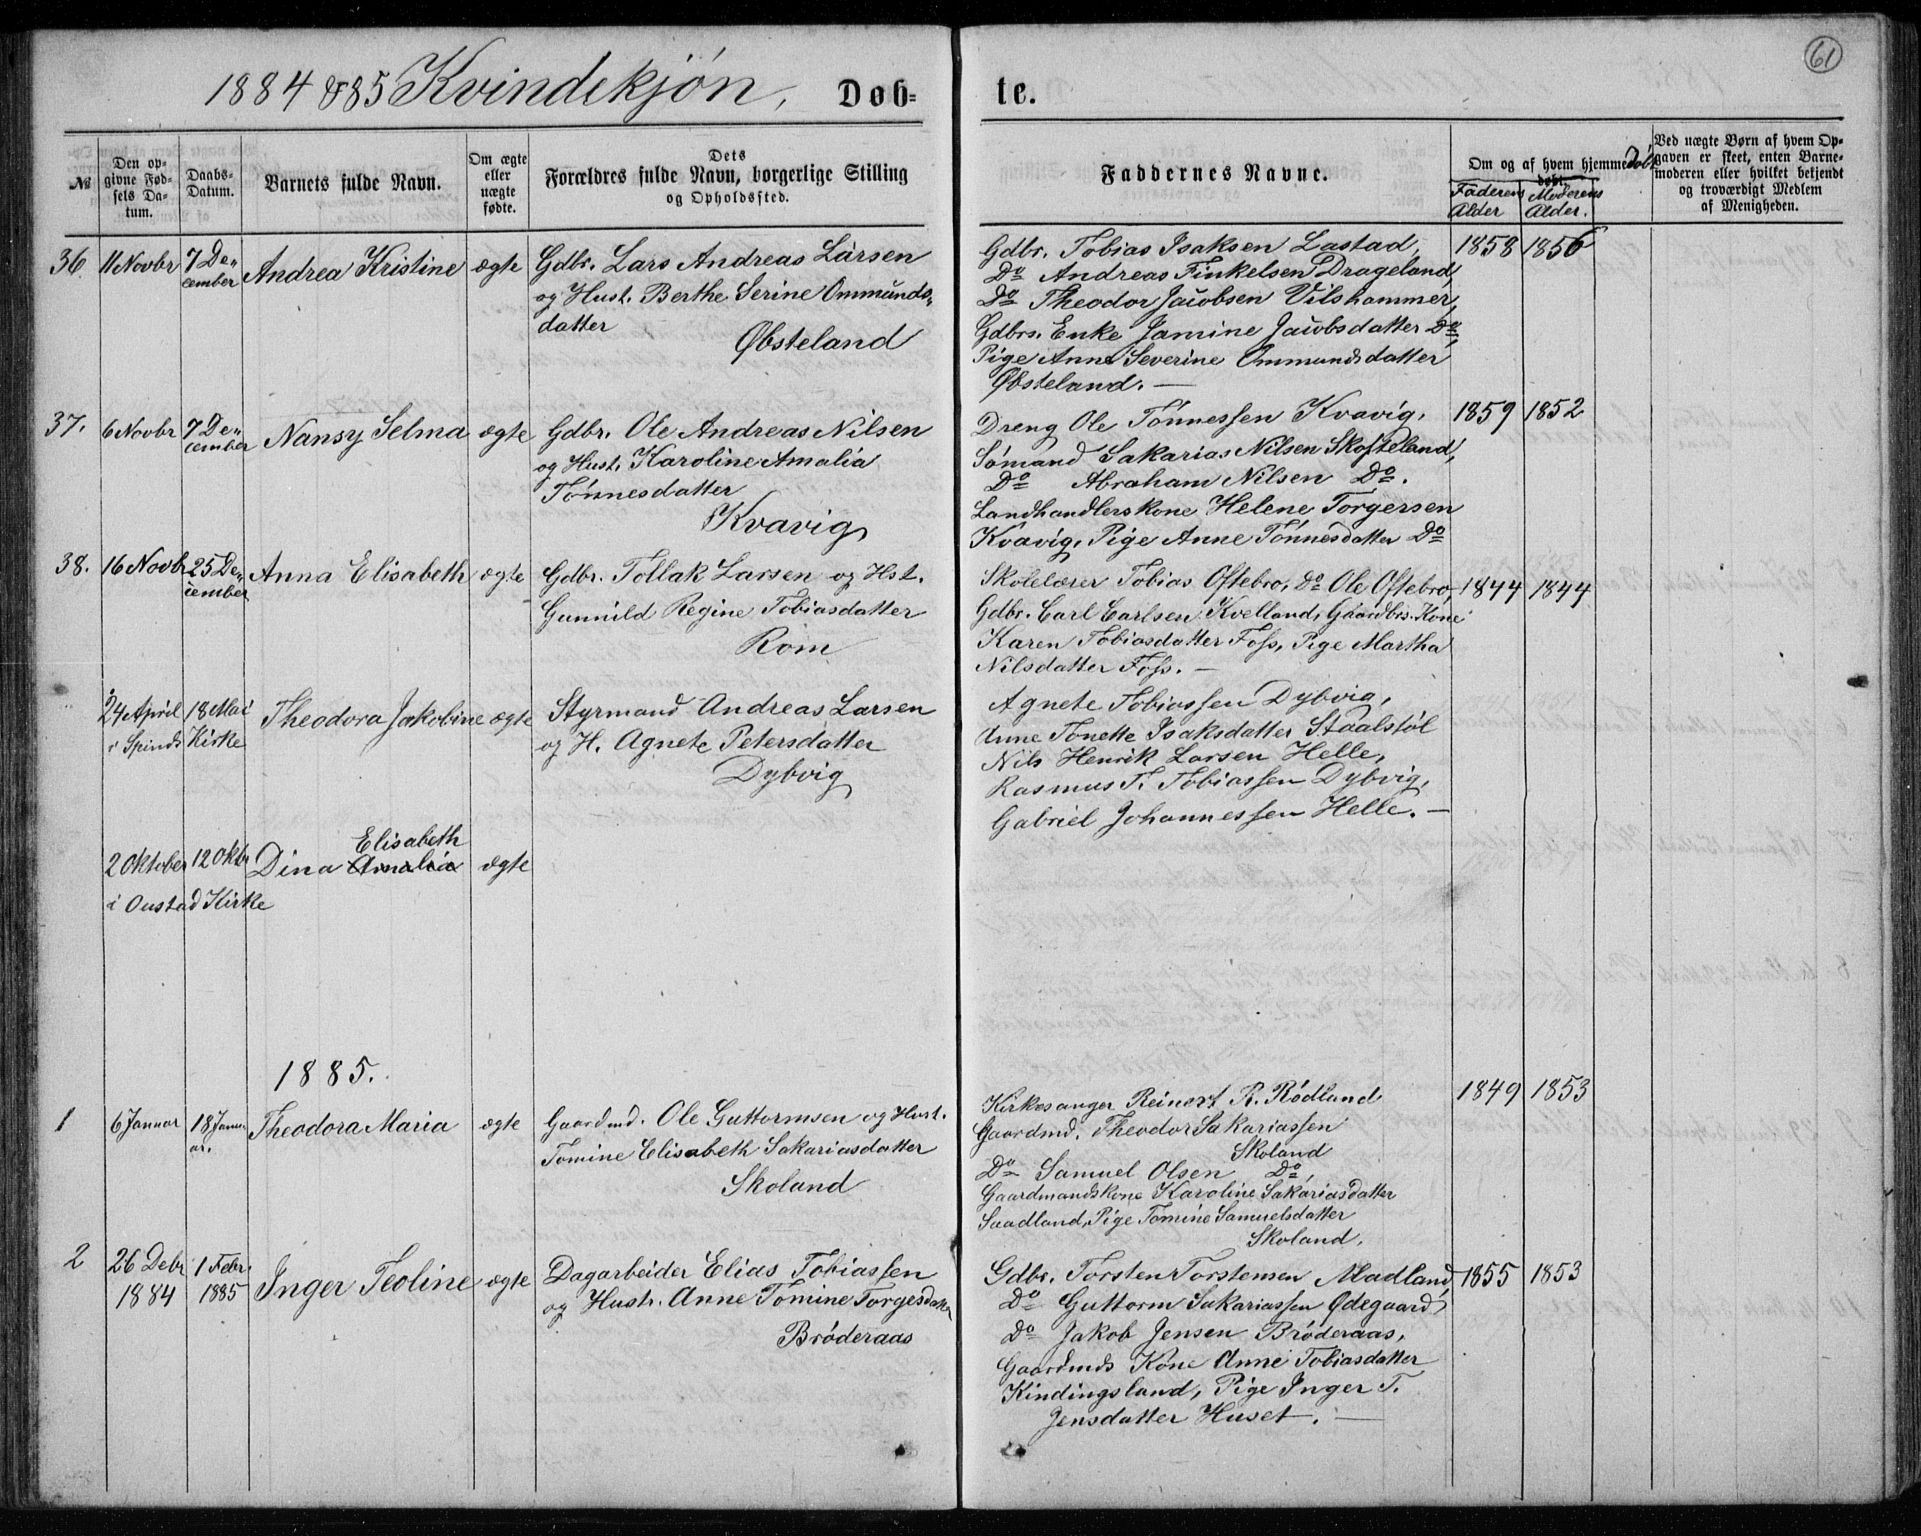 61
1884 & 85 Kvindekjøn, Døb- te.
№
Den op-
givne Fød-
sels Da-
tum.
Daabs-
Datum.
Barnets fulde Navn.
Om ægte
eller
uægte
fødte.
Dets
Forældres fulde Navn, borgerlige Stilling
og Opholdssted.
Faddernes Navne.
Om og af hvem hjemmedøbt
døbt
Faderens
Alder
Moderens
Alder.
Ved uægte Børn af hvem Op-
gaven er skeet, enten Barne-
moderen eller hvilket bekjendt
og troværdigt Medlem
af Menigheden.
36. 11 Novbr 7 De-
cember Andrea Kristine ægte
Gdbr. Lars Andreas Larsen
og Hust. Berthe Serine Ommunds-
datter
Øbsteland
Gdbr. Tobias Isaksen Lastad,
Do Andreas Finkelsen Drageland,
Do Theodor Jacobsen Vilshammer,
Gdbrs. Enke Jamine Jacobsdatter Do,
Pige Anne Severine Ommundsdatter
Øbsteland. —
1858 1856
37. 6 Novbr 7 De-
cember Nansy Selma ægte
Gdbr. Ole Andreas Nilsen
og Hust. Karoline Amalia
Tønnesdatter
Kvavig
Dreng Ole Tønnessen Kvavig,
Sømand Sakarias Nilsen Skofteland,
Do Abraham Nilsen Do.
Landhandlerskone Helene Torgersen
Kvavig, Pige Anne Tønnesdatter Do
1859 1852
38. 16 Novbr 25 De-
cember Anna Elisabeth ægte
Gdbr. Tollak Larsen og Hst.
Gunnild Regine Tobiasdatter
Rom
Skolelærer Tobias Oftebro, Do Ole Oftebro,
Gdbr. Carl Carlsen Kvelland, Gaardbrs. Kone
Karen Tobiasdatter Foss, Pige Martha
Nilsdatter Foss. —
1844 1844
24 April 18 Mai Theodora Jakobine ægte
i Spinds Kirke
Styrmand Andreas Larsen
og H. Agnete Petersdatter
Dybvig
Agnete Tobiassen Dybvig,
Anne Tonette Isaksdatter Staalstøl
Nils Henrik Larsen Helle,
Rasmus T. Tobiassen Dybvig,
Gabriel Johannessen Helle. —
Elisabeth
2 Oktober 12 Oktbr Dina Amalia ægte
i Oustad Kirke
1885.
1 6 Januar 18 Janu-
ar. Theodora Maria ægte
Gaardmd. Ole Guttormsen og Hust.
Tomine Elisabeth Sakariasdatter
Skoland
Kirkesanger Reinert R. Rødland
Gaardmd. Theodor Sakariassen
Skoland
Do Samuel Olsen Do,
Gaardmandskone Karoline Sakariasdatter
Saadland, Pige Tomine Samuelsdatter
Skoland.
1849 1853
2 26 Debr
1884 1 Febr.
1885 Inger Teoline ægte
Dagarbeider Elias Tobiassen
og Hustr. Anne Tomine Torgesdatter
Brøderaas
Gdbr. Torsten Torstensen Madland,
Do Guttorm Sakariassen Ødegaard,
Do Jakob Jensen Brøderaas,
Gaardmds Kone Anne Tobiasdatter
Kindingsland, Pige Inger T.
Jensdatter Huset. —
1855 1853